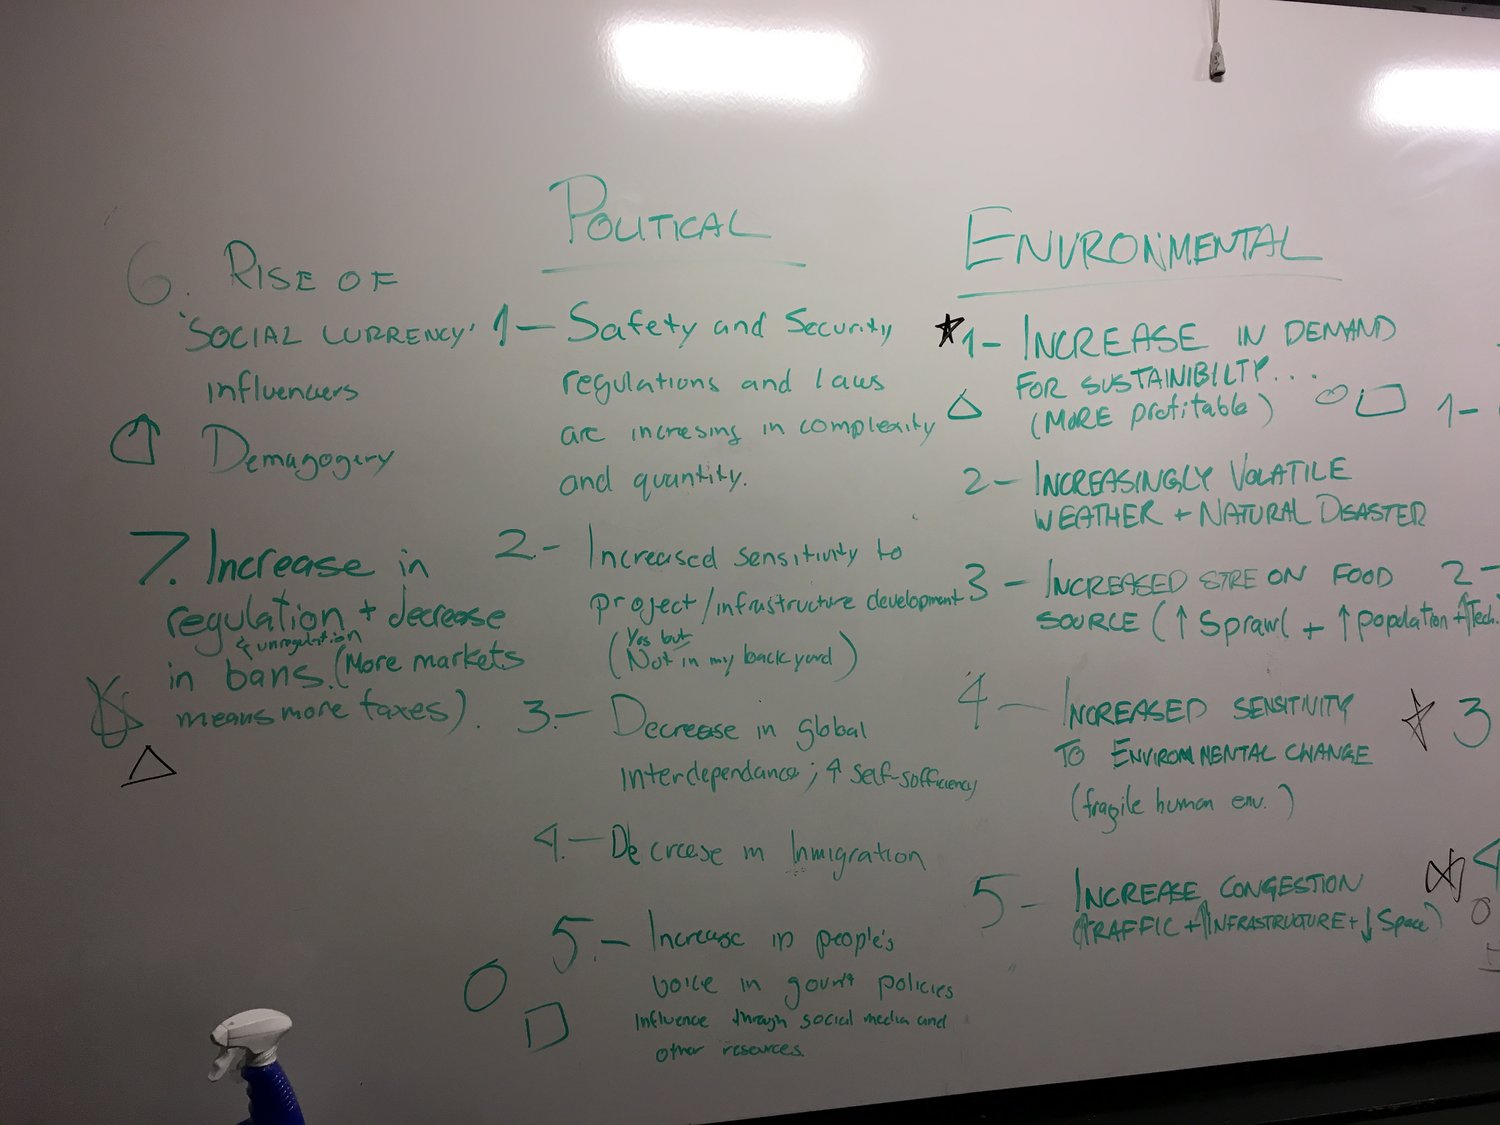 POLITICAL
6. RISE OF
'SOCIAL CURRENCY'
influencers
Demagogery
7. Increase in
regulation + decrease
& unregulation
in bans. (More markets
means more taxes).
1 - Safety and Security
regulations and laws
are incresing in complexity
and quantity.
2.- Increased sensitivity to
project/infrastructure development
(Yes but
Not in my back yard)
3.- Decrease in global
interdependance; ↑ self-sufficiency
4.- Decrease in Inmigration
5.- Increase in people's
voice in gov't policies
Influence through social media and
other resources.
ENVIRONMENTAL
1- INCREASE IN DEMAND
FOR SUSTAINIBILTY...
(MORE profitable)
2- INCREASINGLY VOLATILE
WEATHER + NATURAL DISASTER
3 - INCREASED STRE ON FOOD
SOURCE (↑ Sprawl + ↑ population + ↑ Tech.
4 - INCREASED SENSITIVITY
TO ENVIRONMENTAL CHANGE
(fragile human env.)
5 - INCREASE CONGESTION
(↑TRAFFIC + ↑INFRASTRUCTURE + ↓ Space)
1-
2-
3
4